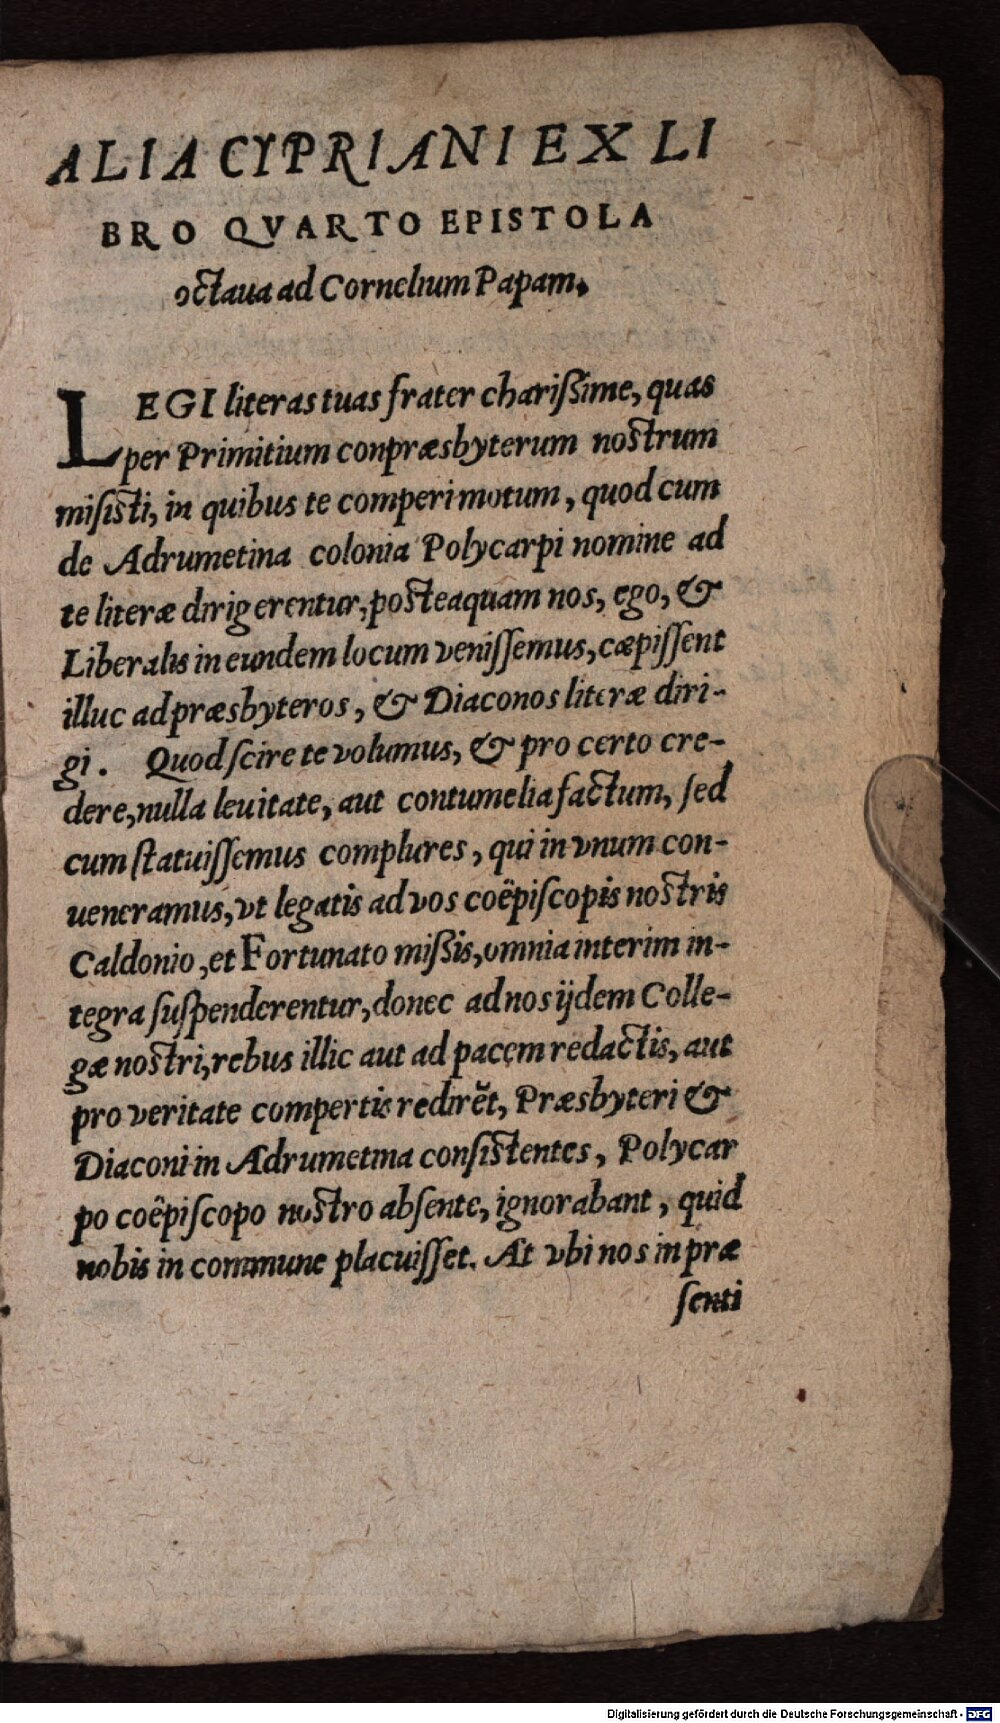 ALIA CYPRIANI EX LI
BRO QVARTO EPISTOLA
octaua ad Cornelium Papam.
LEGI literas tuas frater charißime, quas
per Primitium conpræsbyterum nostrum
misisti, in quibus te comperi motum, quod cum
de Adrumetina colonia Polycarpi nomine ad
te literæ dirigerentur, posteaquam nos, ego, &
Liberalis in eundem locum venissemus, cæpissent
illuc ad præsbyteros, & Diaconos literæ diri-
gi. Quod scire te volumus, & pro certo cre-
dere, nulla leuitate, aut contumelia factum, sed
cum statuissemus complures, qui in vnum con-
ueneramus, vt legatis ad vos coëpiscopis nostris
Caldonio, et Fortunato mißis, omnia interim in-
tegra suspenderentur, donec ad nos ijdem Colle-
gæ nostri, rebus illic aut ad pacem redactis, aut
pro veritate compertis redirēt, Præsbyteri &
Diaconi in Adrumetina consistentes, Polycar
po coëpiscopo nostro absente, ignorabant, quid
nobis in commune placuisset. At vbi nos in præ
senti
Digitalisierung gefördert durch die Deutsche Forschungsgemeinschaft - DFG